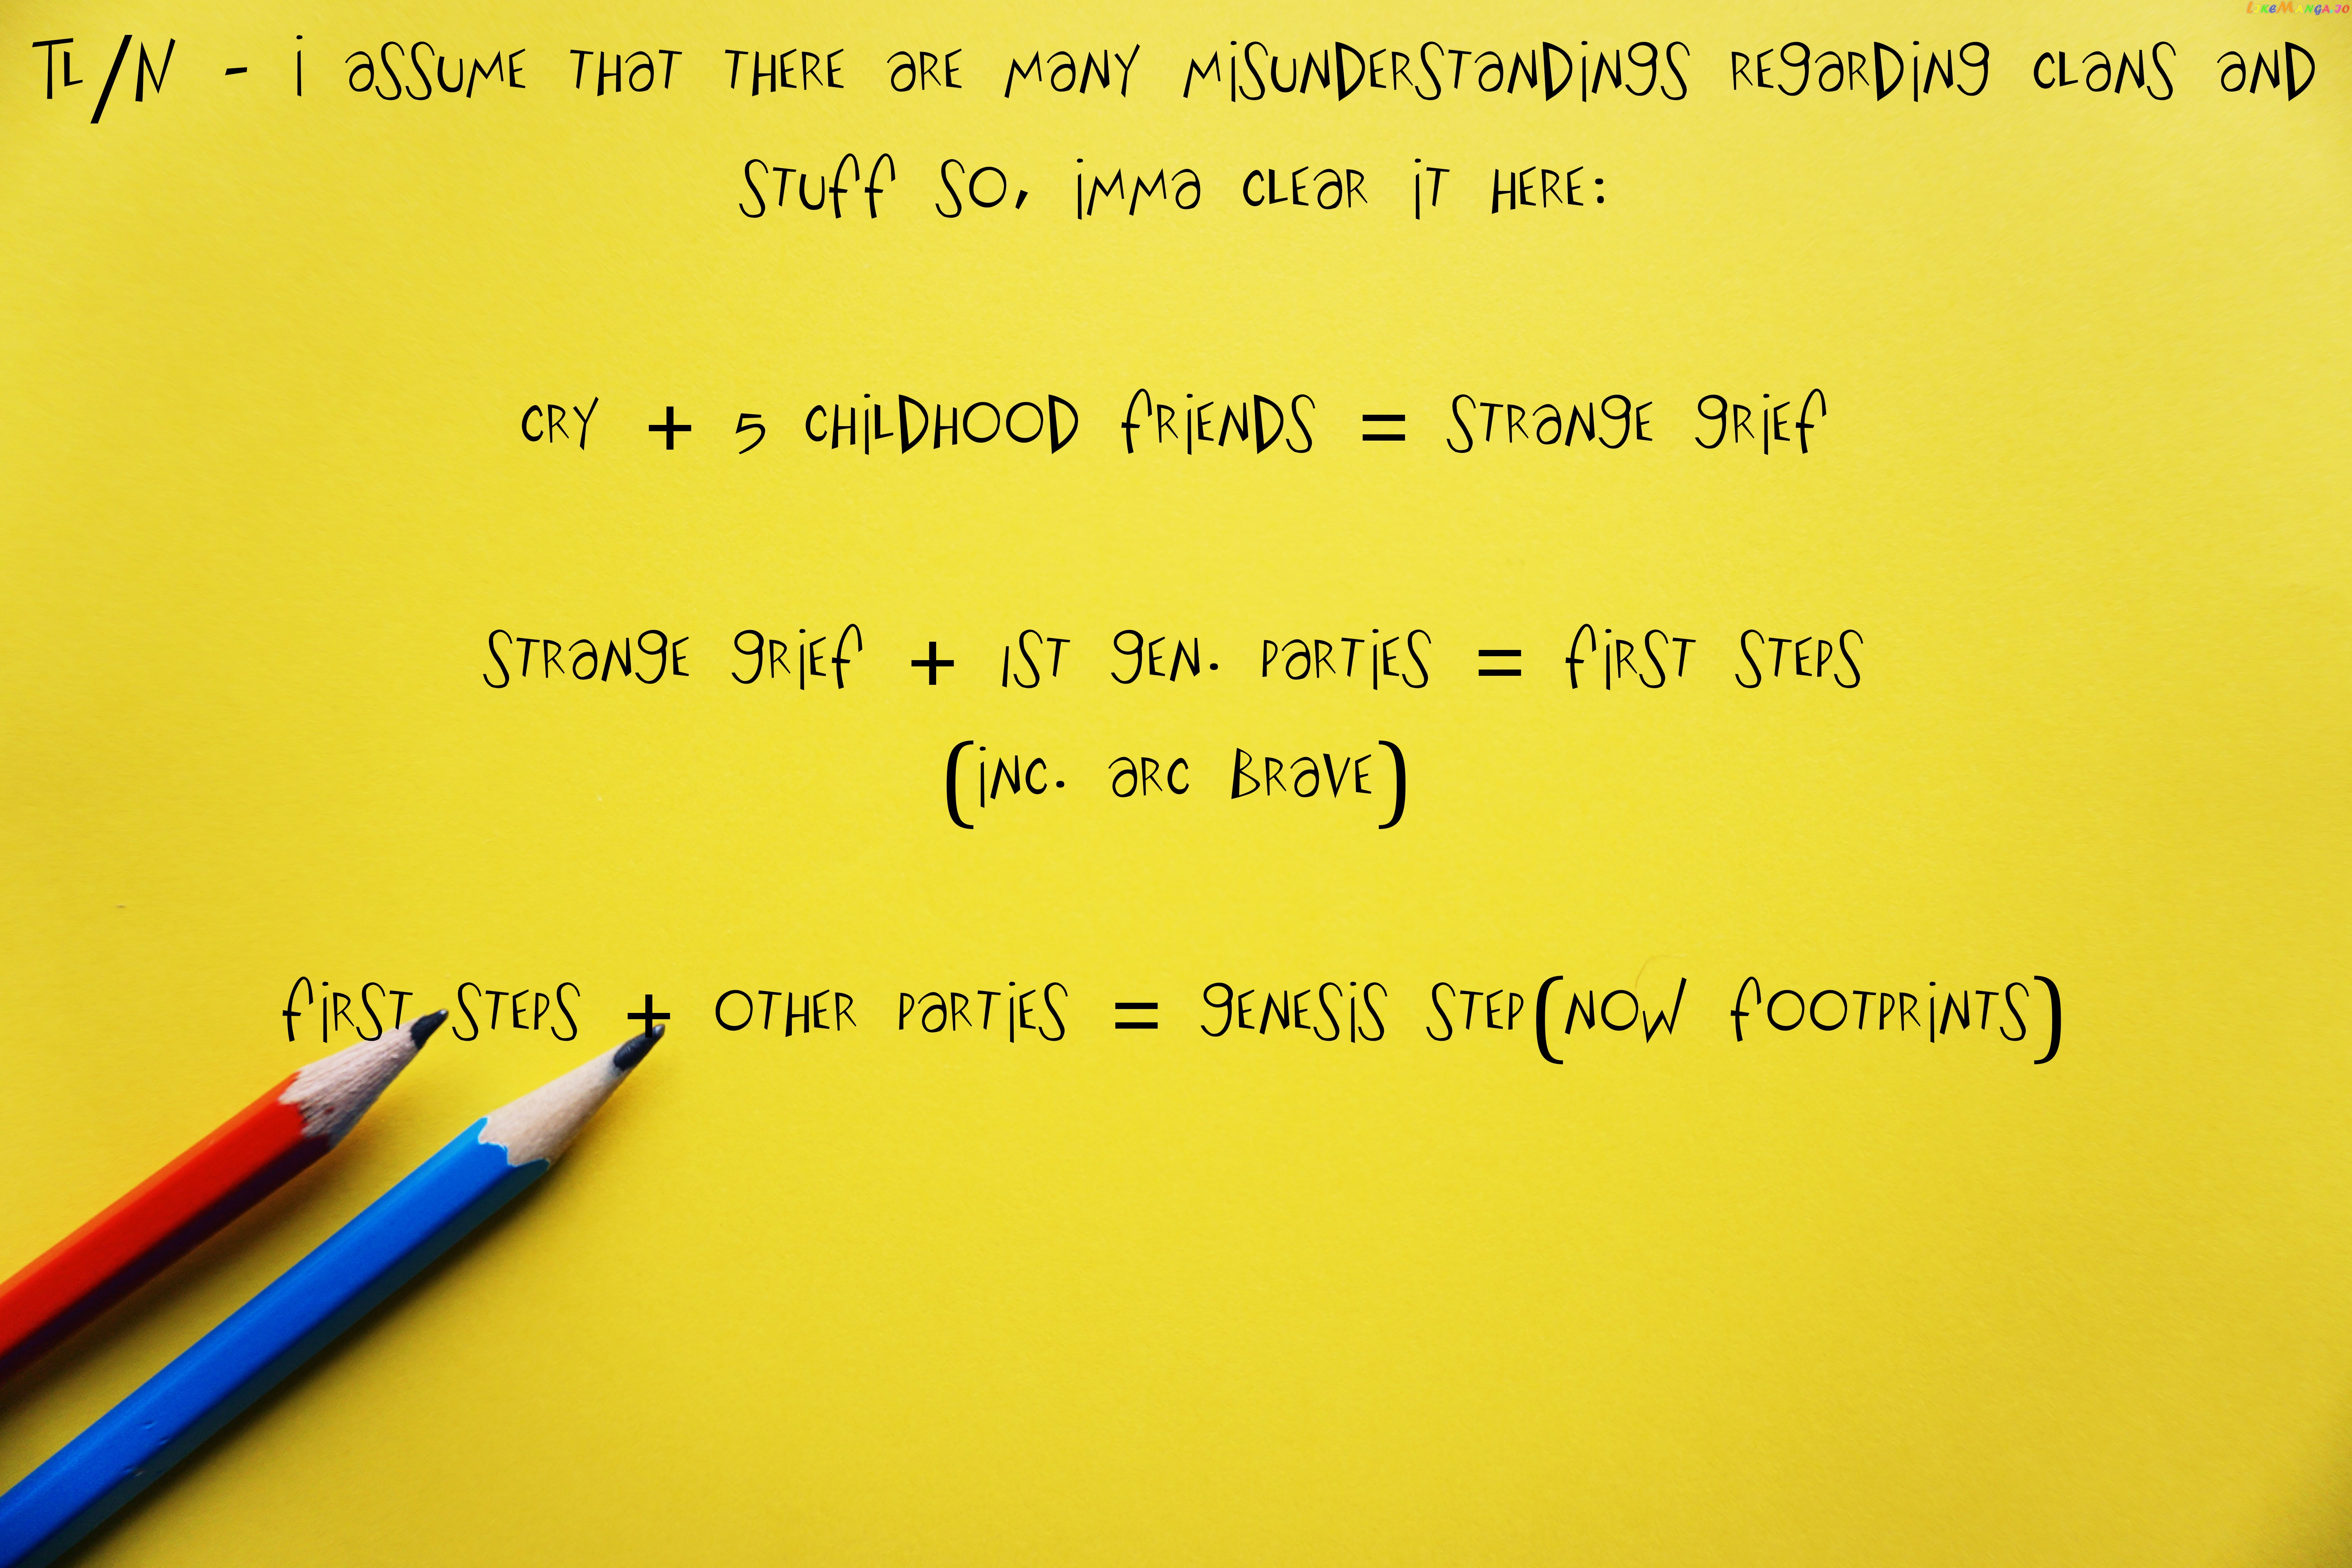 LikeManga.io
TL/N - i assume that there are many misunderstandings regarding clans and
stuff so, imma clear it here:
cry + 5 childhood friends = strange grief
strange grief + 1st gen. parties = first steps
(inc. arc brave)
first steps + other parties = genesis step(now footprints)